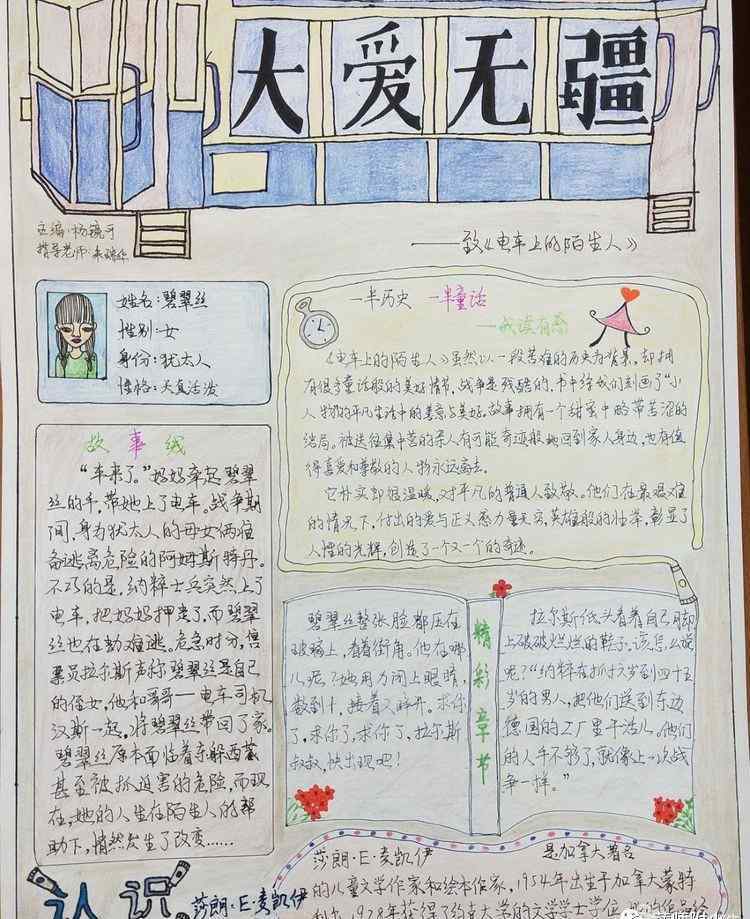 大爱无疆
——致《电车上的陌生人》
主编·杨
指导老师·朱
姓名:碧翠丝
性别:女
身份:犹太人
性格:天真活泼
一半历史 一半童话
——我读有感
《电车上的陌生人》虽然以一段苦难的历史为背景,却拥
有很多童话般的美好情节,战争是残酷的,书中给我们刻画了“小”
人物的平凡生活中的善意与美好。故事拥有一个甜蜜中略带苦涩的
结局。被送往集中营的亲人有可能奇迹般地回到家人身边,也有值
得喜爱和尊敬的人物永远离去。
它朴实却很温暖,对平凡的普通人致敬。他们在最艰难
的情况下,付出的爱与正义感力量无穷,英雄般的壮举,彰显了
人性的光辉,创造了一个又一个的奇迹。
故事线
“车来了。”妈妈牵起碧翠
丝的手,带她上了电车。战争期
间,身为犹太人的母女俩准
备逃离危险的阿姆斯特丹。
不巧的是,纳粹士兵突然上了
电车,把妈妈押走了,而碧翠
丝也在劫难逃。危急时分,售
票员拉尔斯声称碧翠丝是自己
的侄女,他和哥哥—电车司机
汉斯一起。将碧翠丝带回了家。
碧翠丝原本面临着东躲西藏
甚至被抓迫害的危险,而现
在,她的人生在陌生人的帮
助下,悄然发生了改变……
碧翠丝整张脸都压在
玻璃上,看着街角。他在哪
儿呢?她用力闭上眼睛,
数到十,接着又睁开。求你
了,求你了,求你了,拉尔斯
叔叔,快出现吧!
精彩章节
拉尔斯低头看着自己脚
上破破烂烂的鞋子,该怎么说
呢?“纳粹在抓十六岁到四十五
岁的男人,把他们送到东边
德国的工厂里干活儿,他们
的人手不够了,就像上一次战
争一样。”
认识
莎朗·E·麦凯伊
莎朗·E·麦凯伊 是加拿大著名
的儿童文学作家和绘本作家,1954年出生于加拿大蒙特
利尔,1978年获得了约克大学的文学学士学位,她的作品经